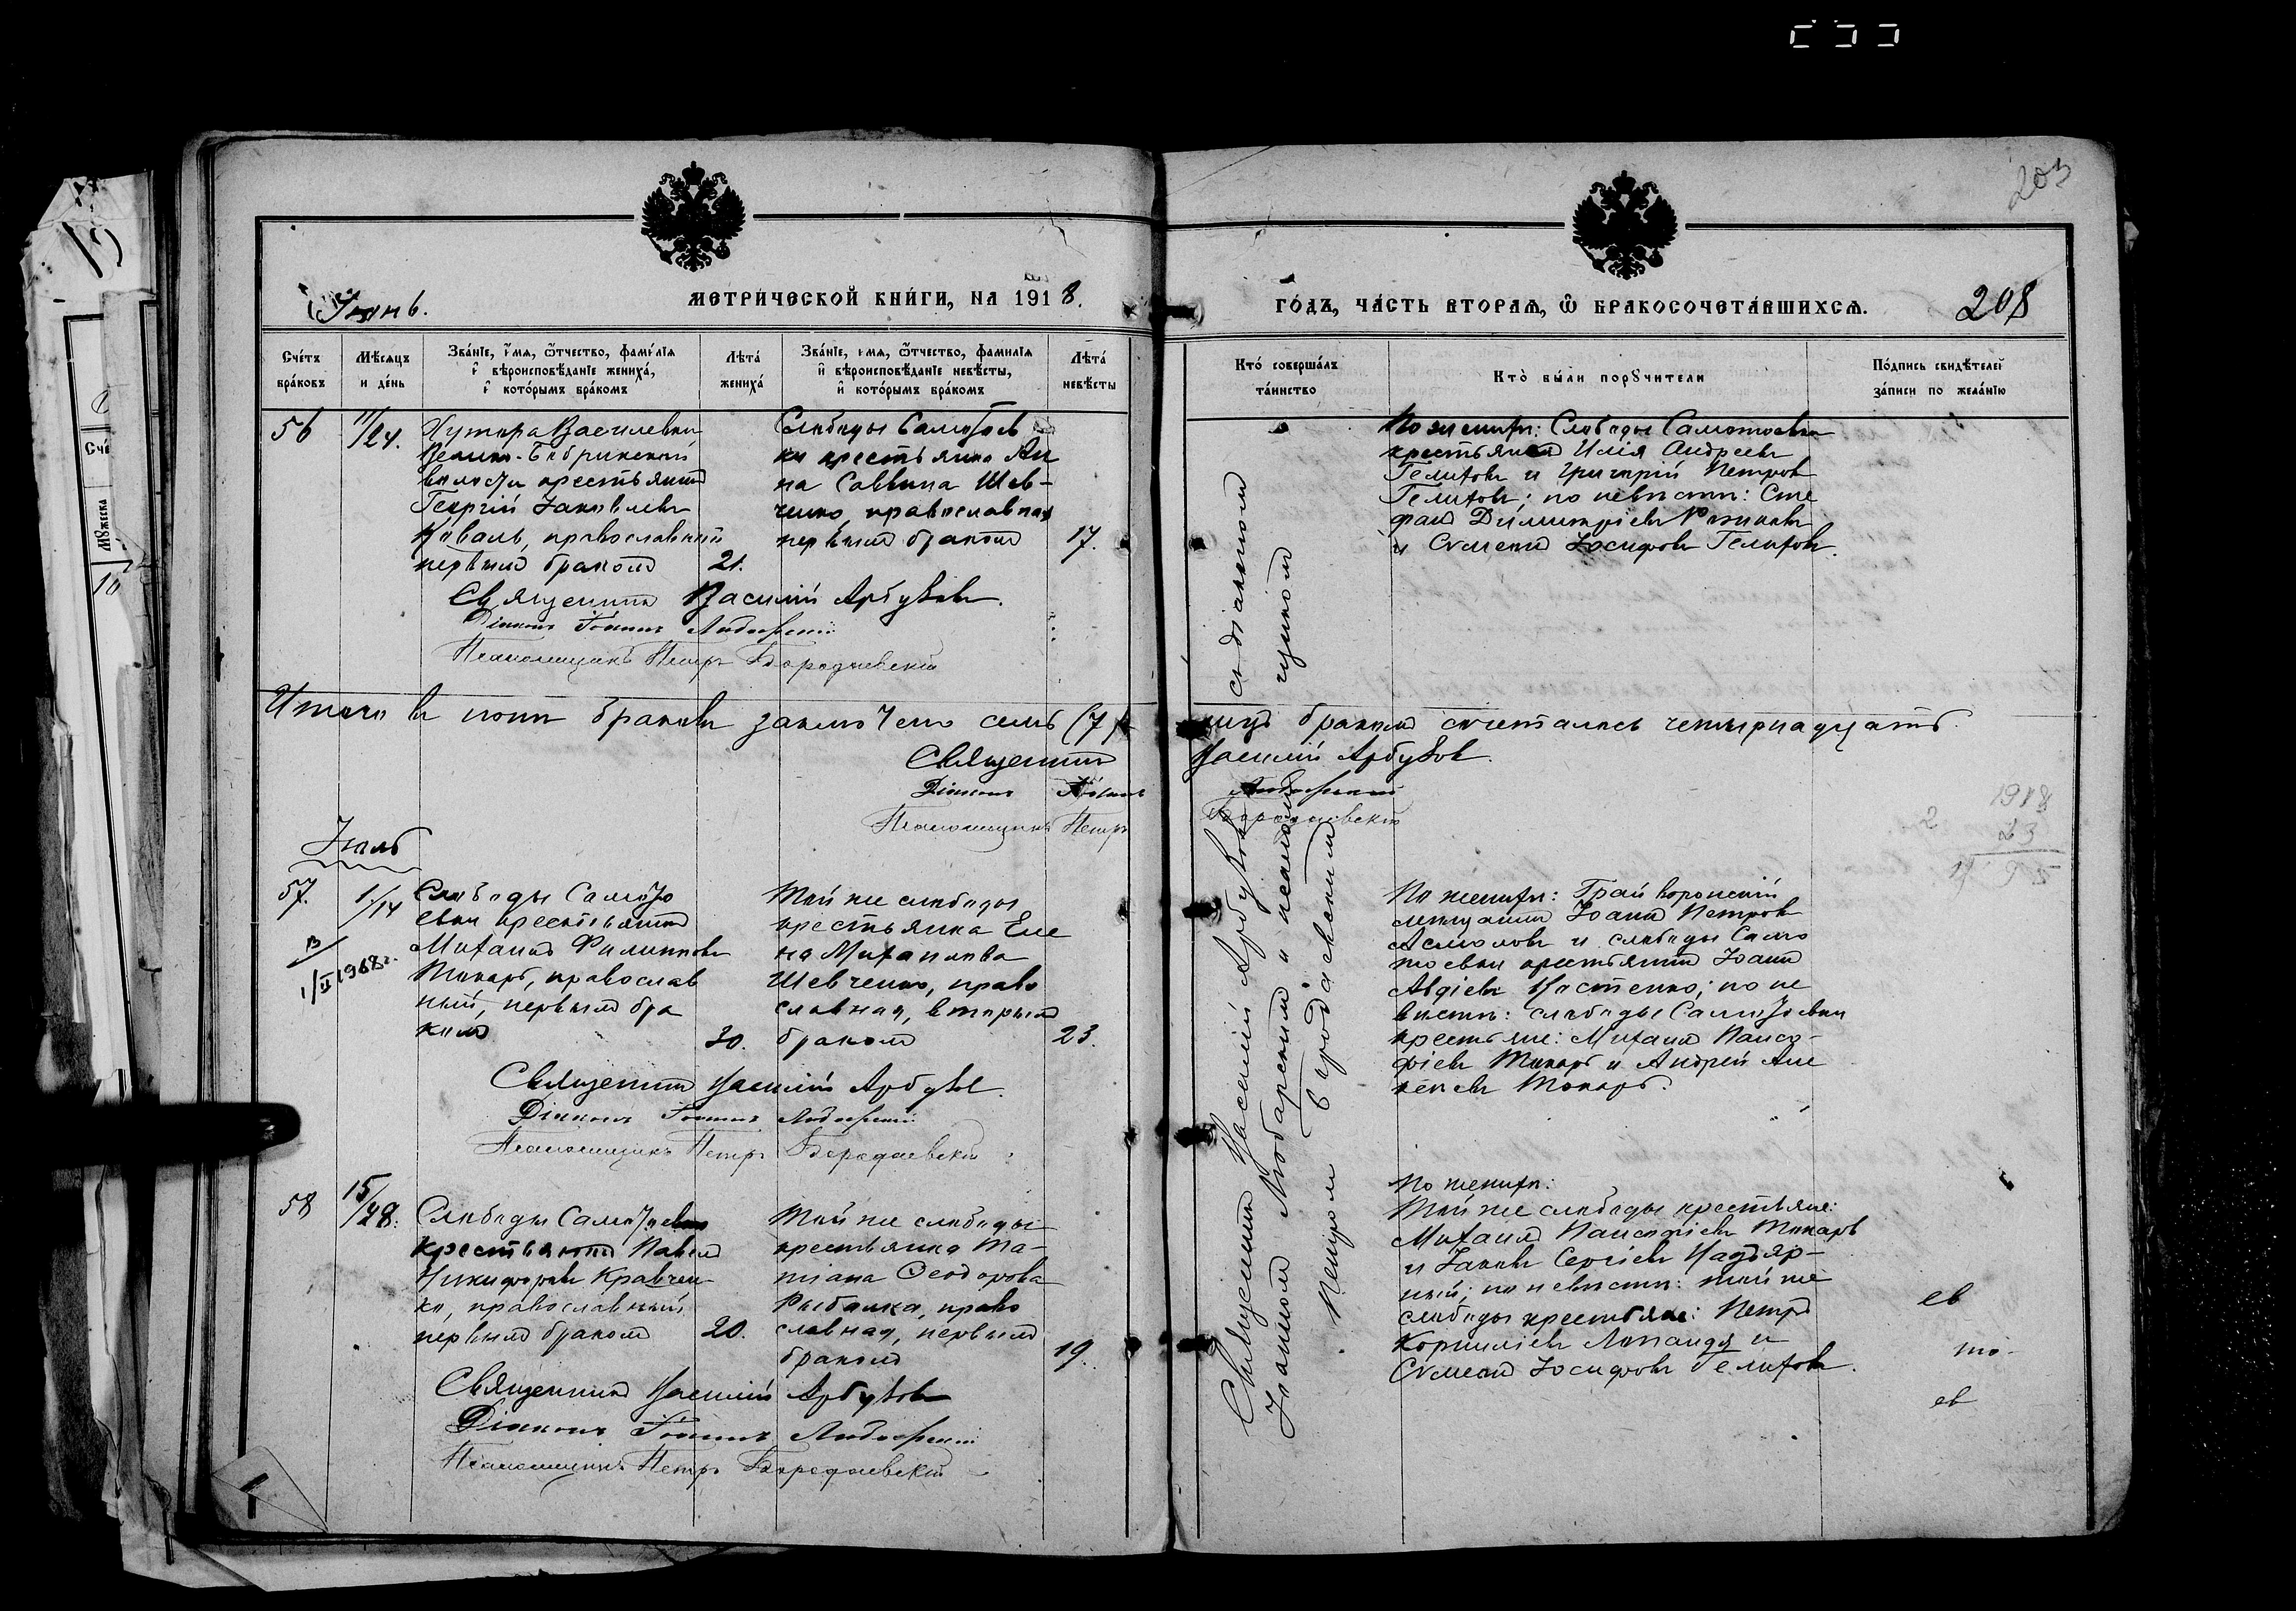 203
Іюнь.
МЕТРИЧЕСКОЙ КНИГИ, НА 1918.
ГОДЪ, ЧАСТЬ ВТОРАЯ, Ѿ БРАКОСОЧЕТАВШИХСЯ.
208
Счетъ браковъ
Мѣсяцъ и день
Званіе, имя, ѿтчество, фамилія
и вѣроисповѣданіе жениха,
и которымъ бракомъ
Лѣта жениха
Званіе, имя, ѿтчество, фамилія
и вѣроисповѣданіе невѣсты,
и которымъ бракомъ
Лѣта невѣсты
Кто совершалъ таинство
Кто были порꙋчители
Подпись свидѣтелей записи по желанію
56
11/24.
Хутора Василевки
Велико-Бобрикской
волости крестьянинъ
Георгій Іаковлевъ
Коваль, православный
первымъ бракомъ
21.
Слободы Самотоев
ки крестьянка Ан
на Саввина Шев-
ченко, православная
первымъ бракомъ
17.
По женихѣ: Слободы Самотоевки
крестьяне Илія Андреевъ
Гелиховъ и Григорій Петровъ
Гелиховъ; по невѣстѣ: Сте
фанъ Димитріевъ
и Симеонъ Іосифовъ Гелиховъ.
Священникъ Василій Арбузовъ.
Діаконъ Іоаннъ Любарскій
Псаломщикъ Петръ Бородаевскій
Итого въ іюнѣ браковъ заключено семь (7)
бракомъ сочетались четырнадцать.
Священникъ Василій Арбузовъ.
Діаконъ Іоаннъ Любарскій
Псаломщикъ Петръ Бородаевскій
Іюль
57.
1/14
Слободы Самото
евки крестьянинъ
Михаилъ Филипповъ
Токарь, православ
ный, первымъ бра
комъ
30.
Той же слободы
крестьянка Еле
на Михаилова
Шевченко, право
славная, вторымъ
бракомъ
23.
По женихѣ: Грайворонскій
мѣщанинъ Іоаннъ Петровъ
Асмоловъ и слободы Само
тоевки крестьянинъ Іоаннъ
Авдіевъ Костенко; по не
вѣстѣ: слободы Самотоевки
крестьяне: Михаилъ Паисо-
фіевъ Токарь и Андрей Але
ксѣевъ Токарь.
Священникъ Василій Арбузовъ.
Діаконъ Іоаннъ Любарскій
Псаломщикъ Петръ Бородаевскій
58
15/28.
Слободы Самотоевки
крестьянинъ Павелъ
Никифоровъ Кравчен
ко, православный
первымъ бракомъ
20.
Той же слободы
крестьянка Та-
тіана Ѳеодорова
Рыбалка, право
славная, первымъ
бракомъ
19.
По женихѣ:
Той же слободы крестьяне:
Михаилъ Паисофіевъ Токарь
и Іаковъ Сергіевъ
ный; по невѣстѣ: той же
слободы крестьяне: Петръ
Корниліевъ и
Симеонъ Іосифовъ Гелиховъ.
Священникъ Василій Арбузовъ
Діаконъ Іоаннъ Любарскій
Псаломщикъ Петръ Бородаевскій
Священникъ Василій Арбузовъ съ діакономъ
Іоанномъ Любарскимъ и псаломщикомъ
Петромъ Бородаевскимъ